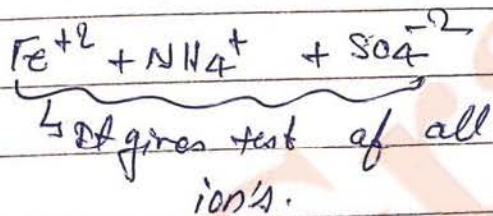 Fe⁺² + NH4⁺ + SO4⁻²
↳ It gives test of all
ion's.